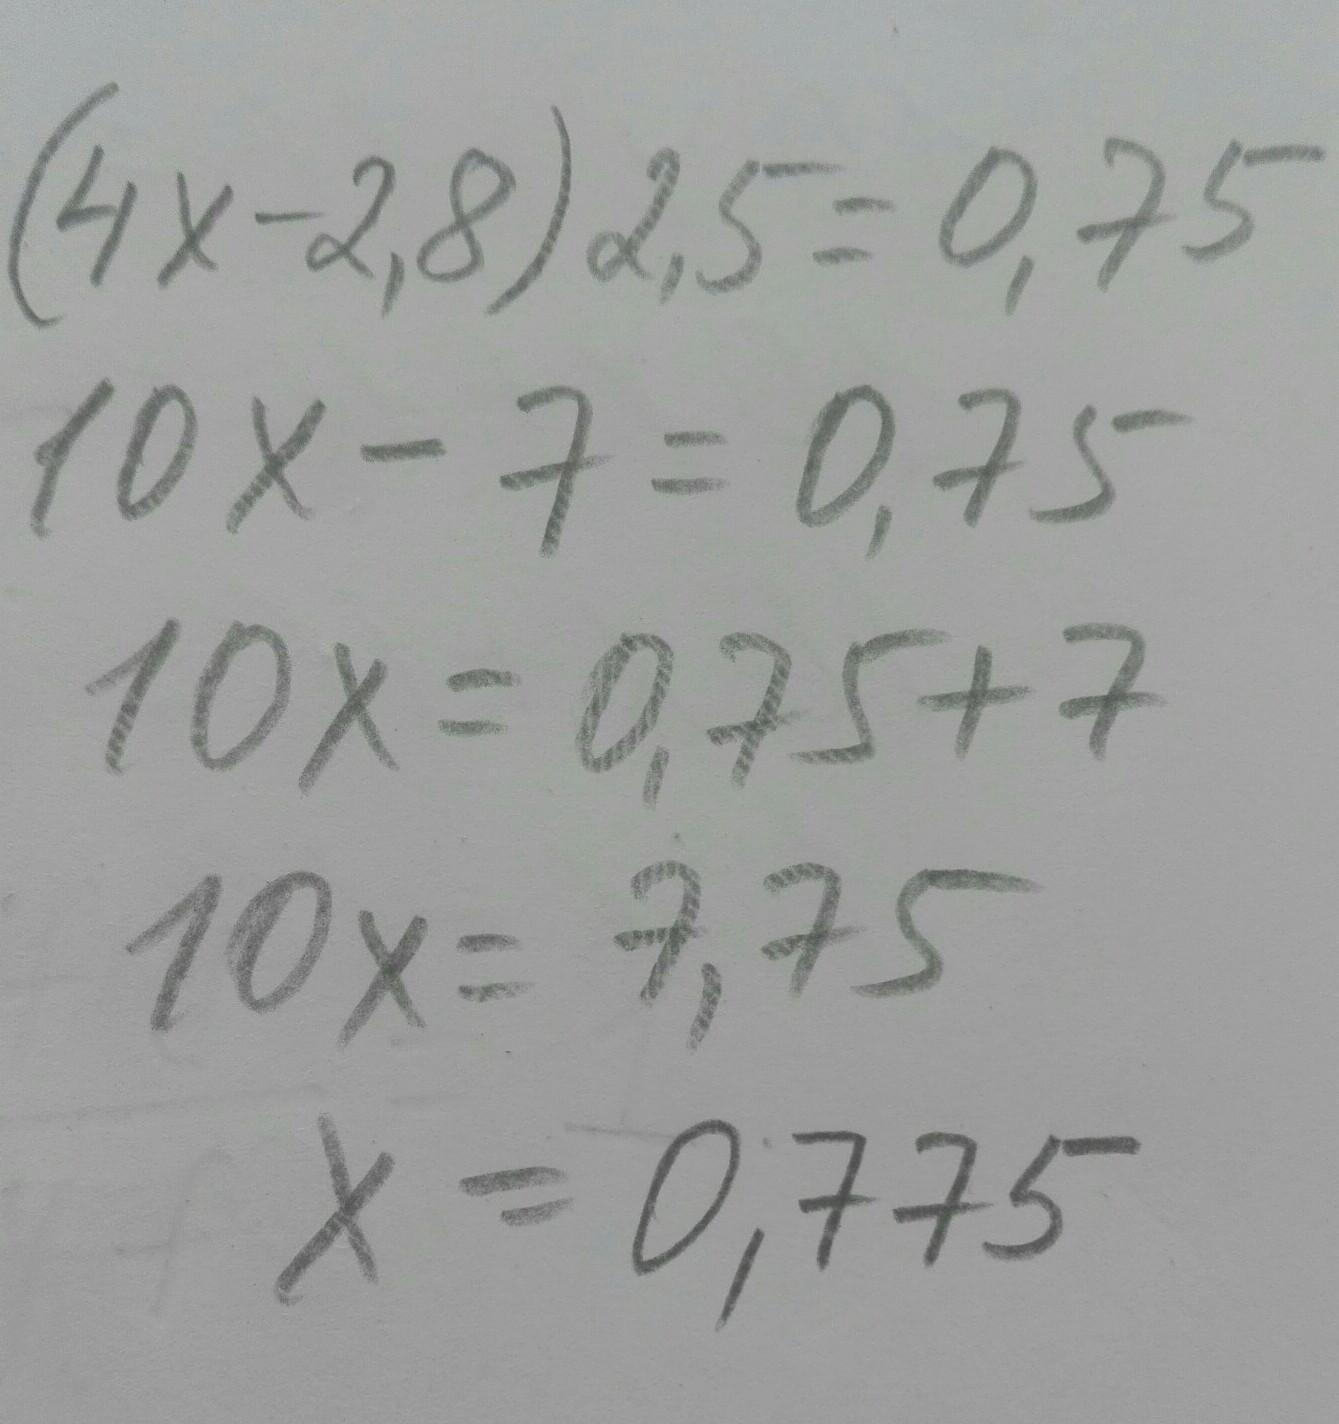 (4x-2,8)2,5=0,75
10x-7=0,75
10x=0,75+7
10x=7,75
x=0,775